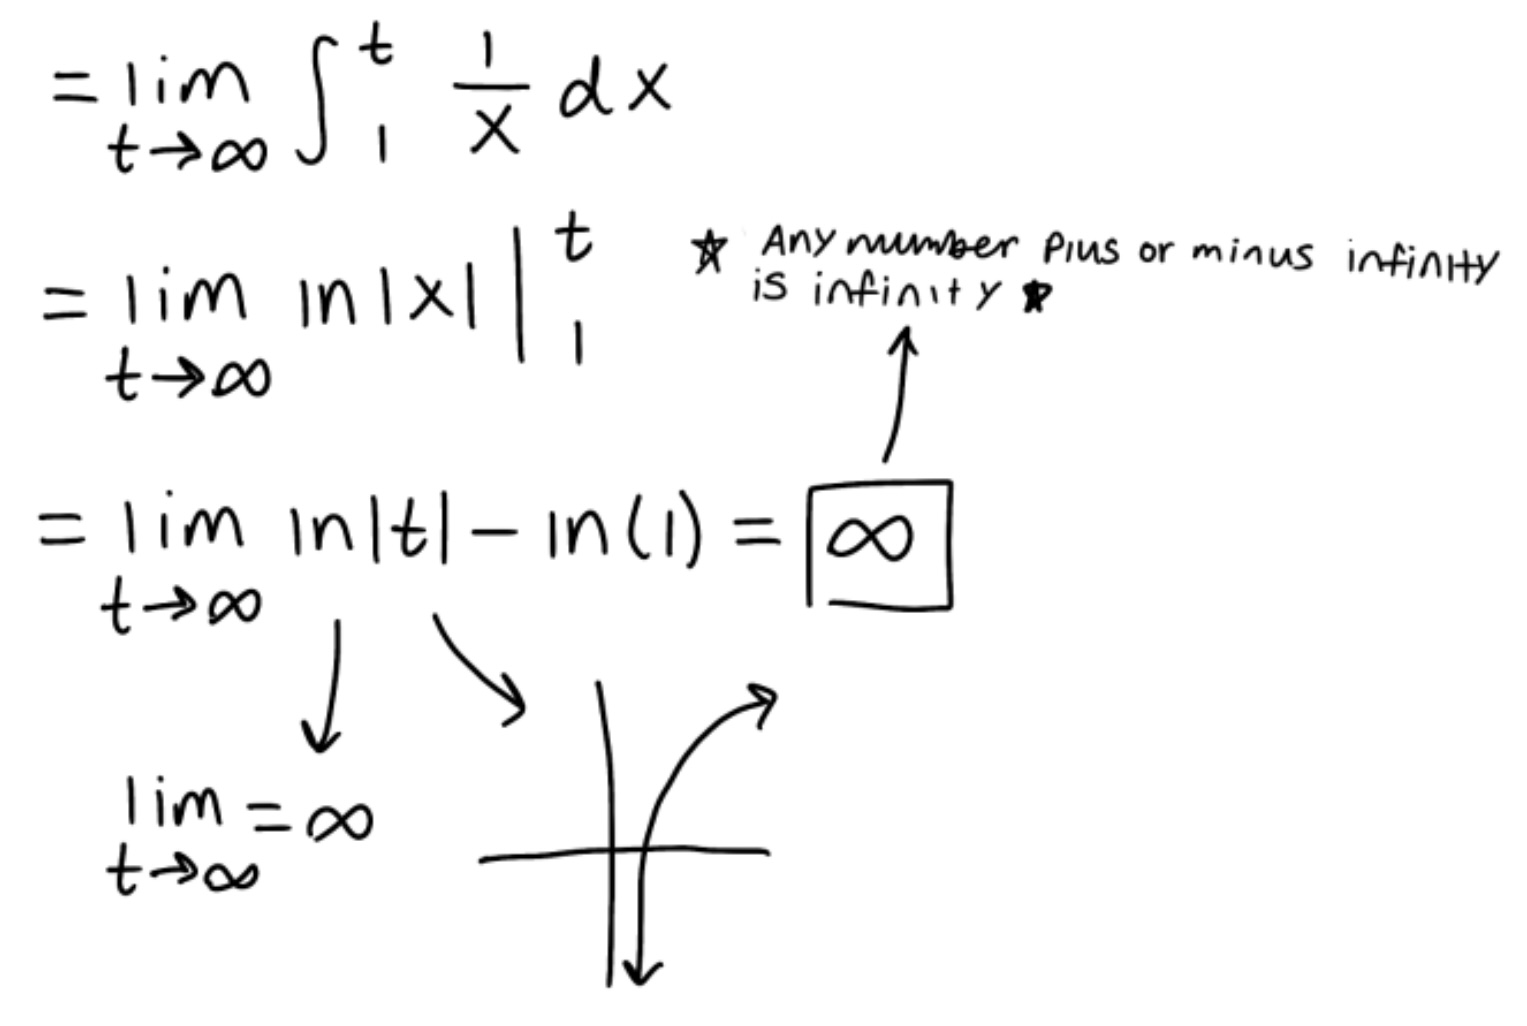 = lim t→∞ ∫ t 1 1/x dx
= lim t→∞ ln|x| | t 1
★ Any number plus or minus infinity
is infinity ★
= lim t→∞ ln|t| - ln(1) = ∞
lim t→∞ = ∞